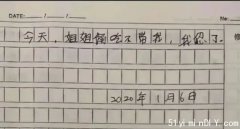 DATE
No.
今天,姐姐偷吃不带我,我 了.
2020年1月6日
51yiminDIY.com